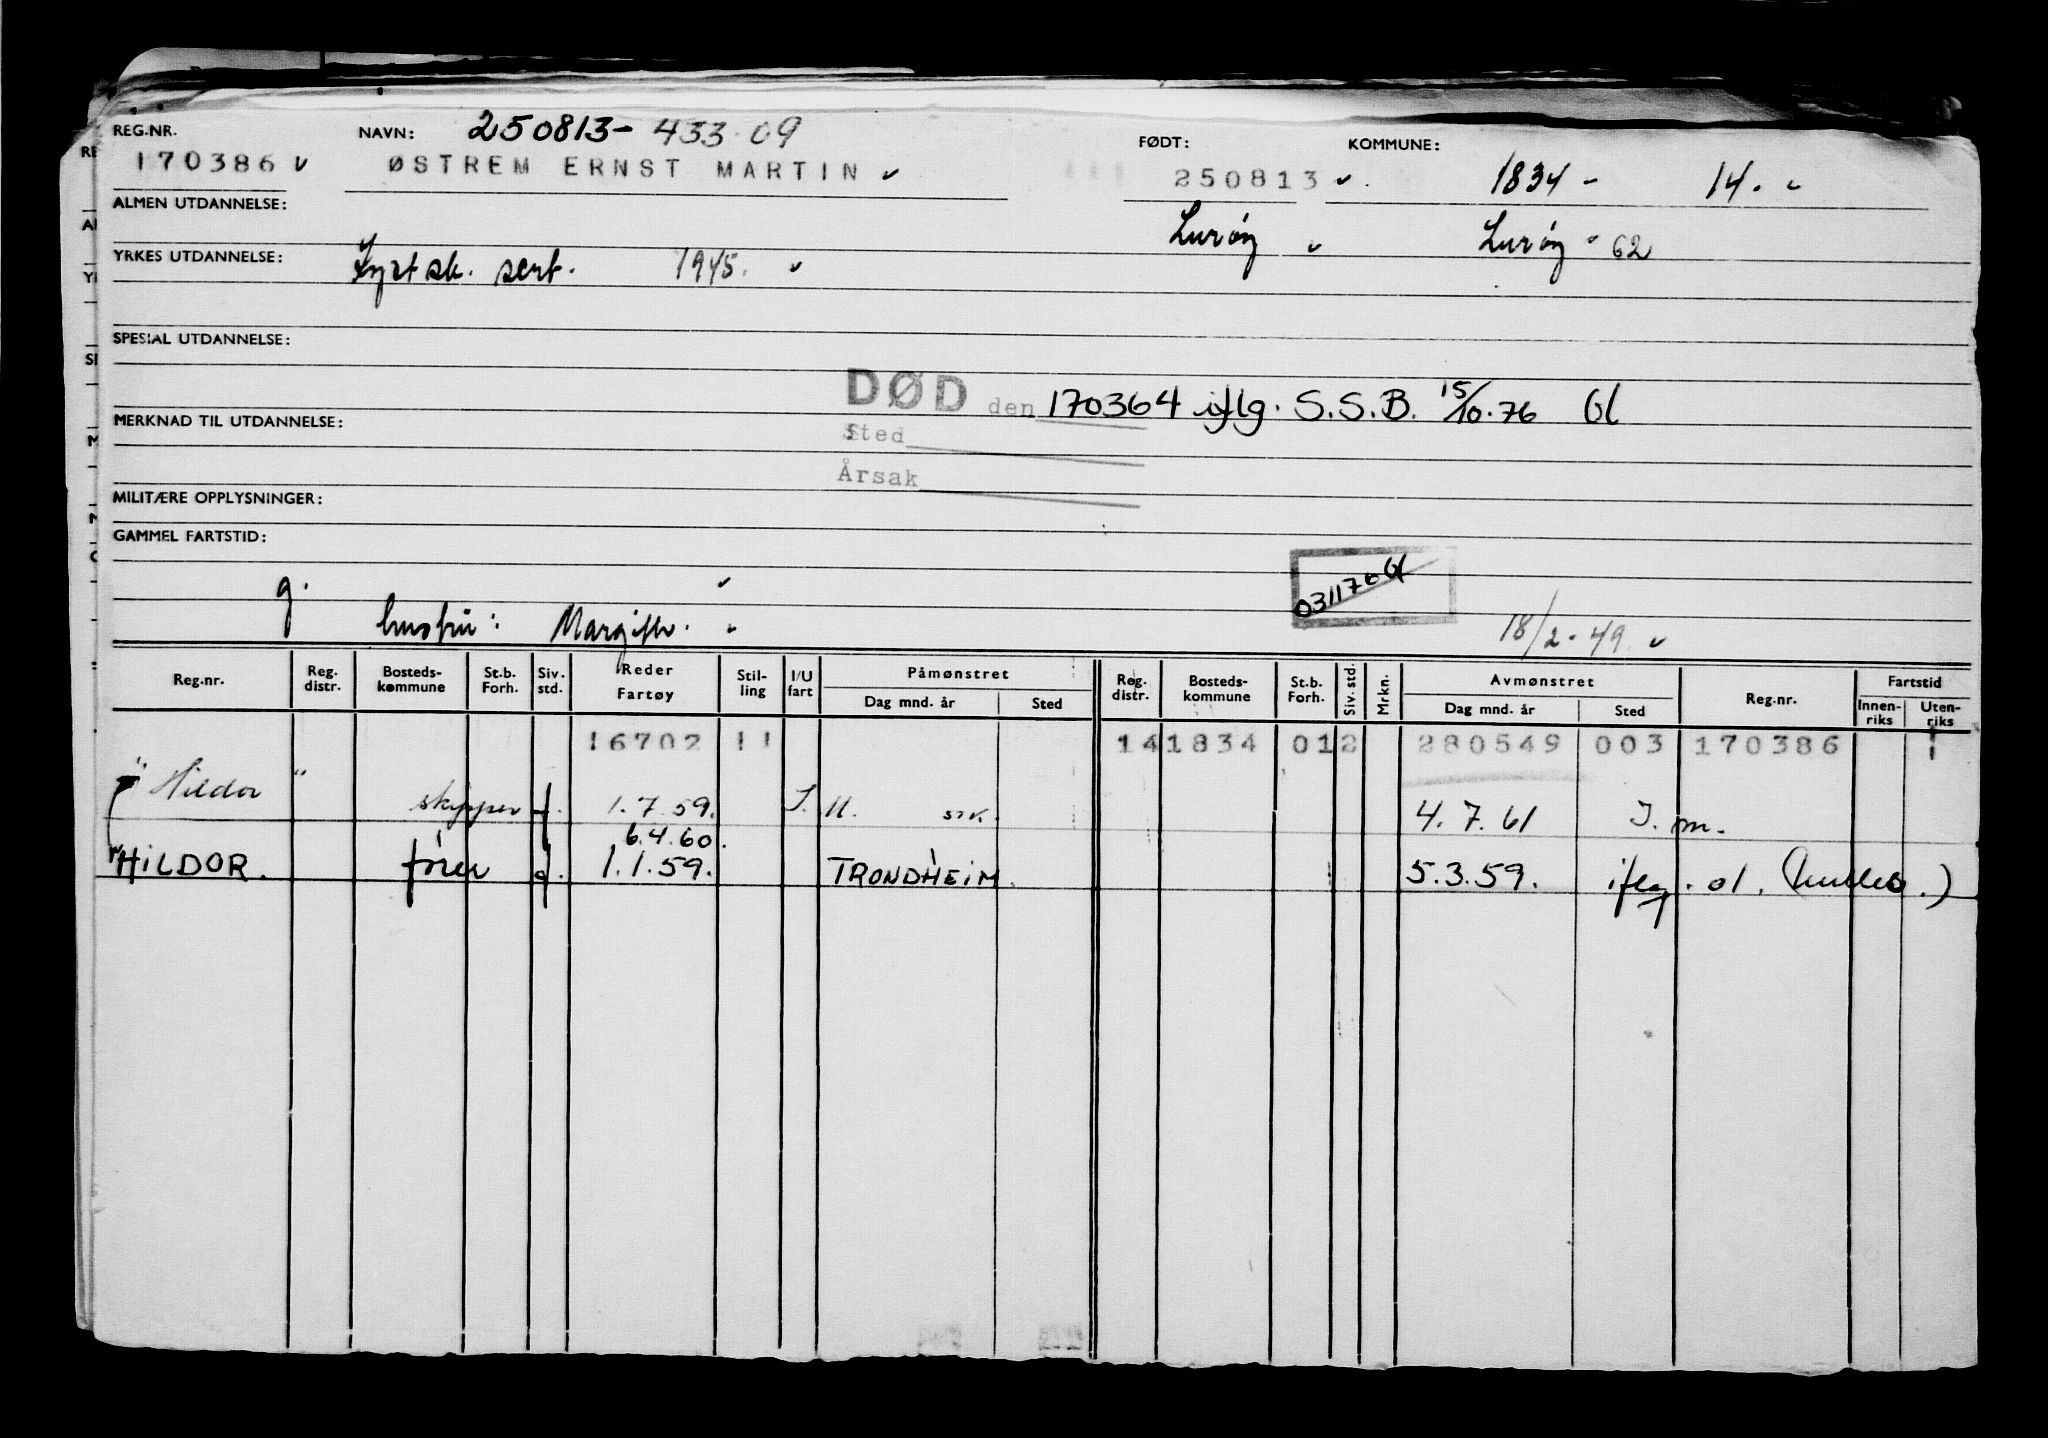 REG.NR. NAVN: 250813- 433 09 FØDT: KOMMUNE:
170386 ØSTREM ERNST MARTIN 250813 1834 - 14.
ALMEN UTDANNELSE: Lurøy Lurøy 62
YRKES UTDANNELSE: Kyst sk. sert. 1945.
SPESIAL UTDANNELSE:
DØD den 170364 iflg. S.S.B. 15/10.76
MERKNAD TIL UTDANNELSE: Sted
Årsak
MILITÆRE OPPLYSNINGER:
GAMMEL FARTSTID:
g. 031176
hustru: 18/2-49
Reg.nr. Reg. distr. Bosteds-kommune St.b. Forh. Siv. std. Reder Fartøy Stil-ling I/U fart Påmønstret Dag mnd. år Sted Reg. distr. Bosteds-kommune St.b. Forh. Siv. std. Mrkn. Avmønstret Dag mnd. år Sted Reg.nr. Fartstid Innen-riks Uten-riks
16702 11 14 1834 01 2 280549 003 170386
"Hildor" skipper f. 1.7.59. I. 4.7.61 I. m.
6.4.60.
"HILDOR. fører f. 1.1.59. TRONDHEIM. 5.3.59. iflg. ol.